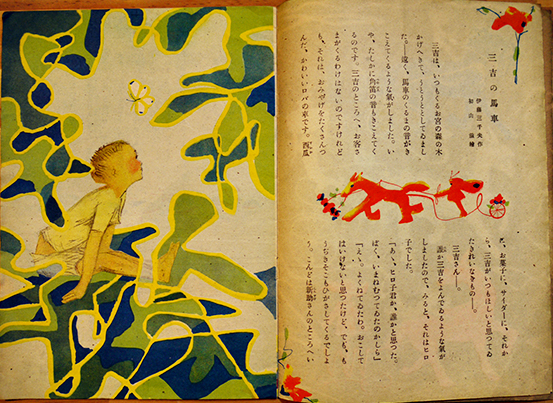 三吉の馬車
三吉は、いつもくるお宮の森の木
かげへきて、うとうととしてゐまし
た。――遠い、馬車のくるまの音がき
こえてくるような氣がしました。い
や、たしかに角笛の音もきこえてく
るのです。三吉のところへ、お客さ
まがくるわけはないのですけれど
も、それは、おみやげをたくさんつ
んだ、かわいいロバの車です。西瓜
や、お菓子に、サイダーに、それか
ら、三吉がいつもほしいと思つてゐ
たきれいなきもの――。
三吉さん――。
誰か三吉をよんでゐるような氣が
しましたので、みると、それはヒロ
子でした。
「あゝ、ヒロ子君か、誰かと思つた。
ぼく、いまねむつてゐたのかしら」
「えゝ、よくねてゐたわ。おこして
はいけないと思つたけど、でも、も
うぢきそこもひがさしてくるでしよ
う。こんどは新助さんのところへい